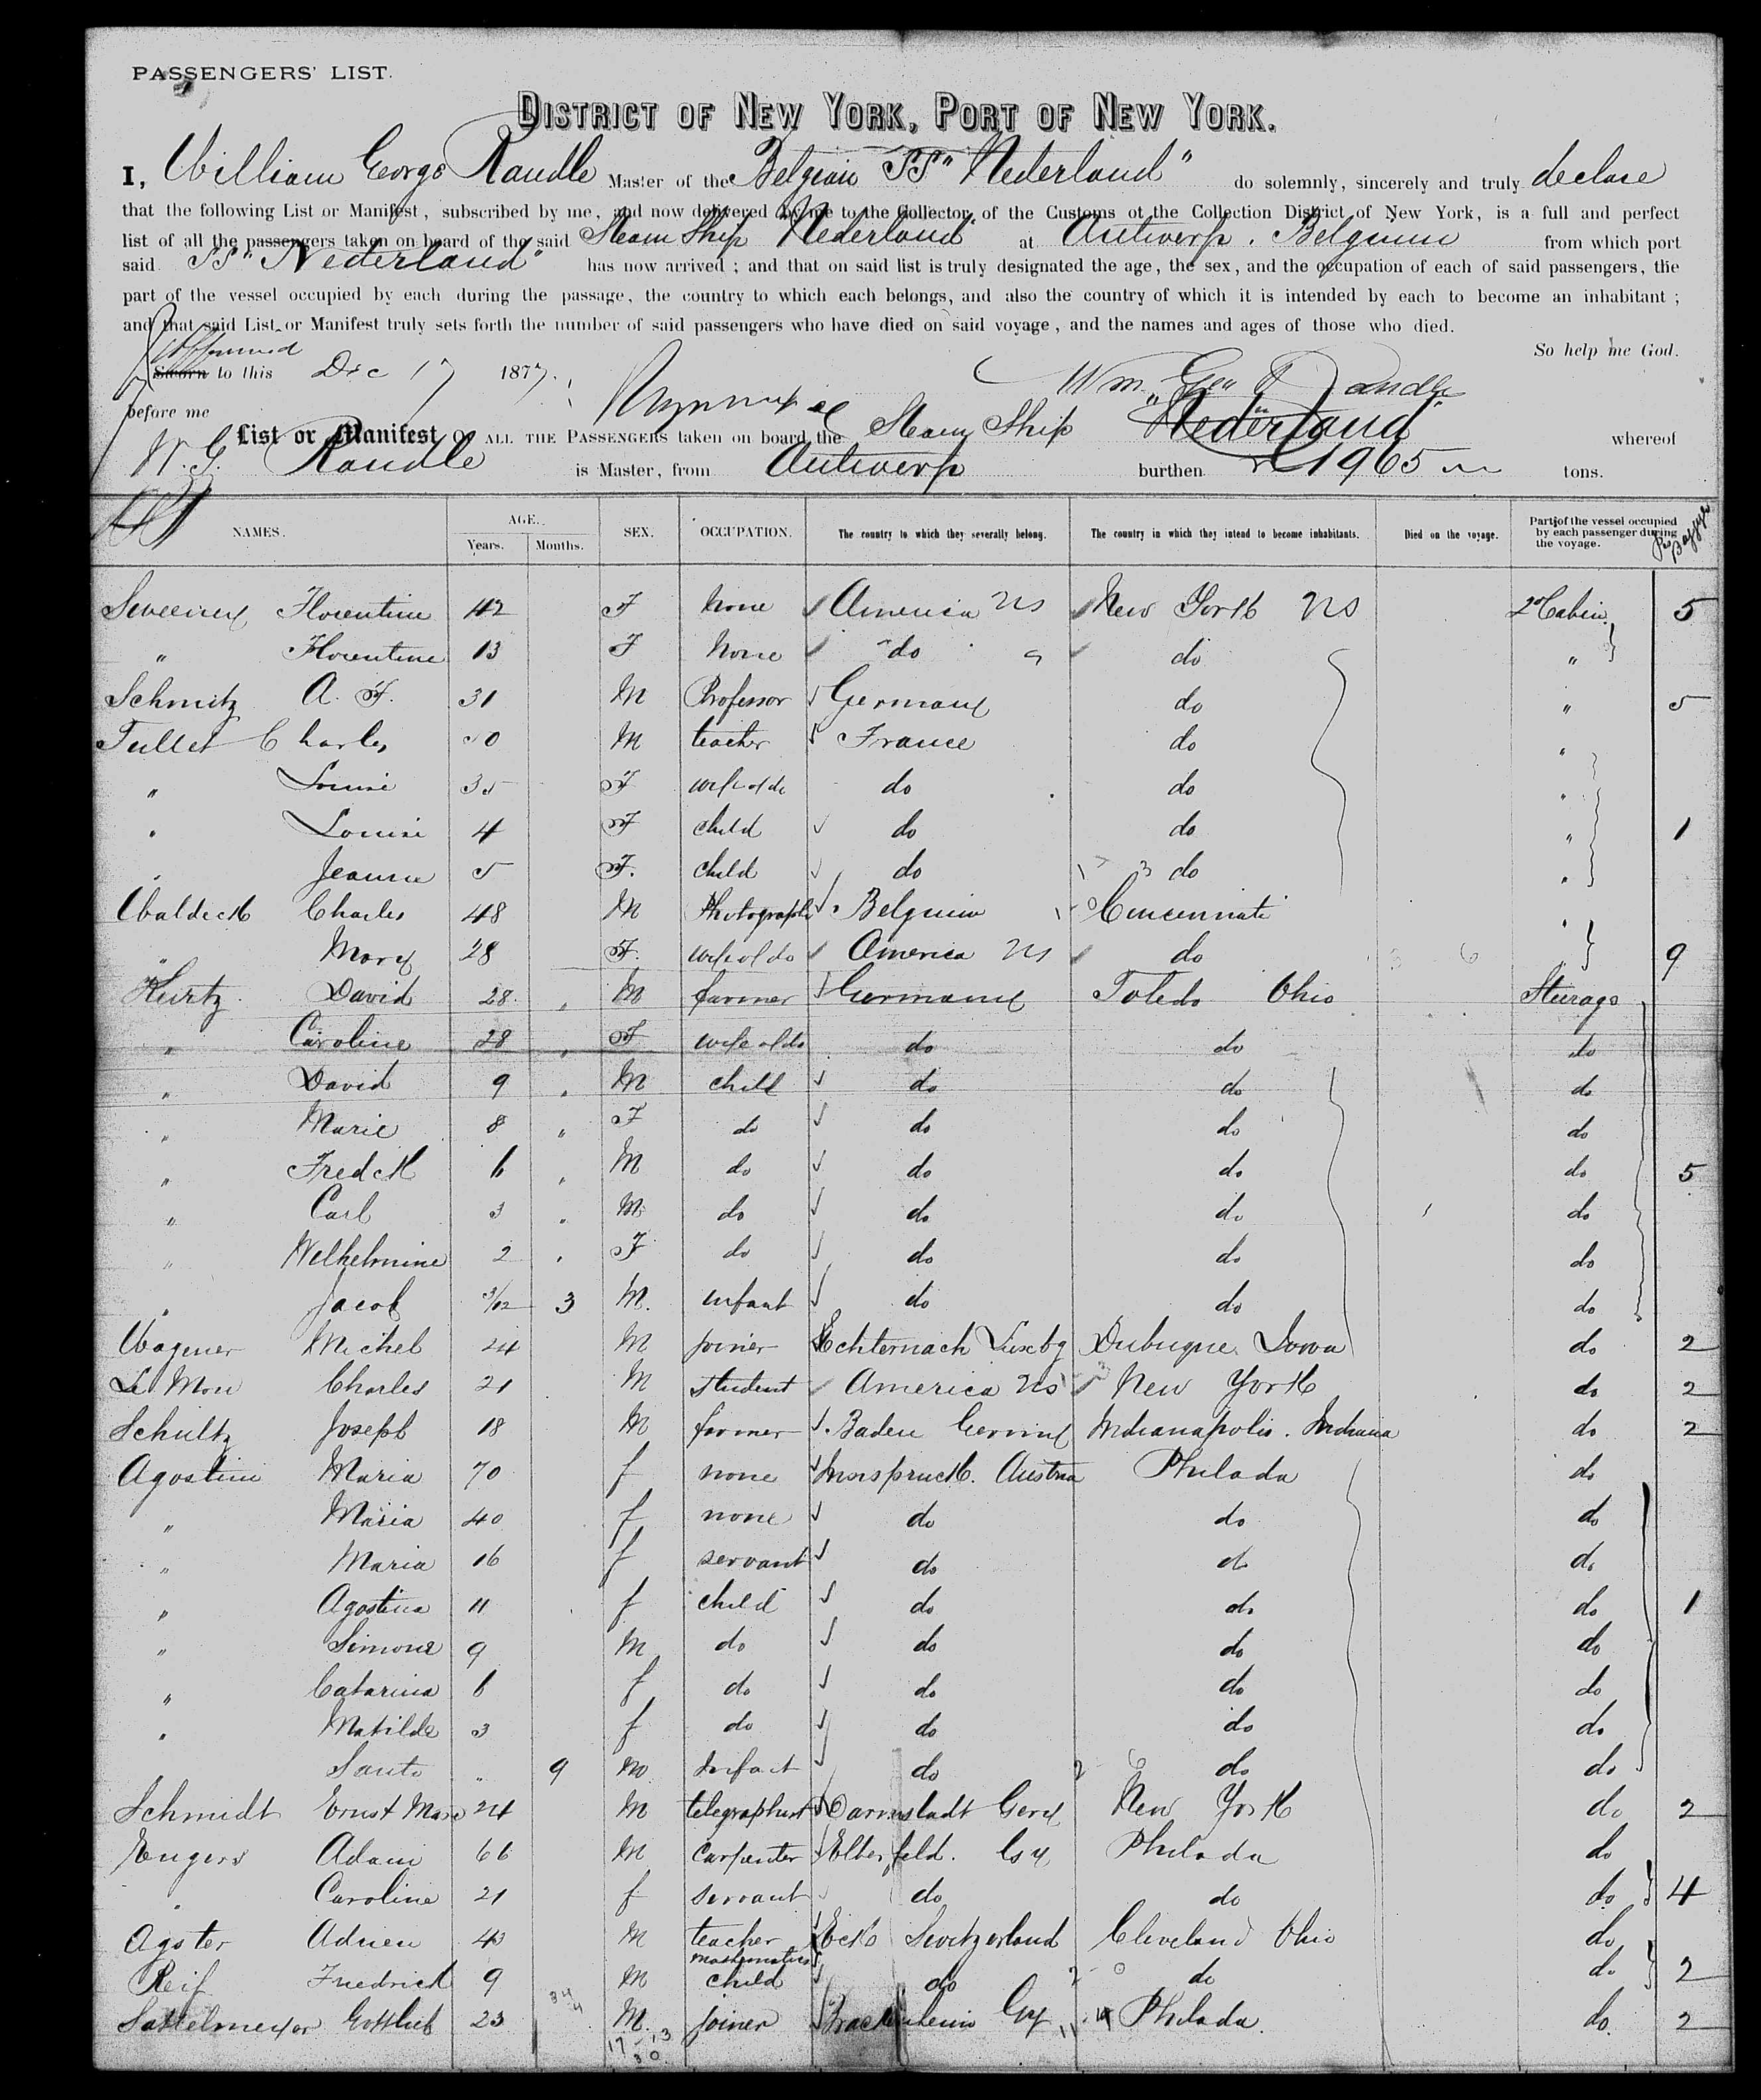 PASSENGERS' LIST.
DISTRICT OF NEW YORK, PORT OF NEW YORK.
I, William George Randle Master of the Belgian SS "Nederland" do solemnly, sincerely and truly declare
that the following List or Manifest, subscribed by me, and now delivered by me to the Collector of the Customs ot the Collection District of New York, is a full and perfect
list of all the passengers taken on board of the said Steam Ship Nederland at Antwerp. Belgium from which port
said SS "Nederland" has now arrived; and that on said list is truly designated the age, the sex, and the occupation of each of said passengers, the
part of the vessel occupied by each during the passage, the country to which each belongs, and also the country of which it is intended by each to become an inhabitant;
and that said List or Manifest truly sets forth the number of said passengers who have died on said voyage, and the names and ages of those who died.
So help me God.
Affirmed
Sworn to this Dec 17 1877.
Wm. Geo Randle
before me
List or Manifest OF ALL THE PASSENGERS taken on board the Steam Ship Nederland whereof
W. G. Randle is Master, from Antwerp burthen 1965 tons.
NAMES. AGE. Years. Months. SEX. OCCUPATION. The country to which they severally belong. The country in which they intend to become inhabitants. Died on the voyage. Part of the vessel occupied by each passenger during the voyage. Baggage
Florentine 42 F None America US New York US 2d Cabin 5
" Florentine 13 F None do do "
Schmitz A. F. 31 M Professor Germany do " 5
Charles M teacher France do "
" Louise 35 F wife of do do do "
" Louise 4 F child do do " 1
" Jeanne 5 F. child do do "
Waldeck Charles 48 M Photographer Belgium Cincennati "
" Mary 28 F. wife of do America US do 9
Kurtz David 28 " M farmer Germany Toledo Ohio Sterage
" Caroline 28 " F wife of do do do do
" David 9 " M child do do do
" Marie 8 " F do do do do
" Fredck 6 " M do do do do 5
" Carl 3 " M do do do do
" Wilhelmine 2 " F do do do do
" Jacob 3/12 3 M. infant do do do
Wagener Michel 24 M joiner Echternach Luxbg Dubuque Iowa do 2
Le Mon Charles 21 M student America US New York do 2
Schultz Joseph 18 M farmer Baden Germy Indianapolis. Indiana do 2
Agostini Maria 70 f none Innspruck. Austria Philada do
" Maria 40 f none do do do
" Maria 16 f servant do do do
" Agostina 11 f child do do do 1
" Simone 9 M do do do do
" Catarina 6 f do do do do
" Matilde 3 f do do do do
Santo " 9 m Infant do do do
Schmidt Ernst Max 24 M telegraphist Darmstadt Gery New York do 2
Engers Adam 66 M carpenter Elberfeld. Gy Philada do
" Caroline 21 f servant do do do 4
Agster Adrien 43 M teacher mathematics Switzerland Cleveland Ohio do
Reif Friedrick 9 M child do do do 2
Sattelmeyer Gottlieb 23 M. joiner Gy Philada. do. 2